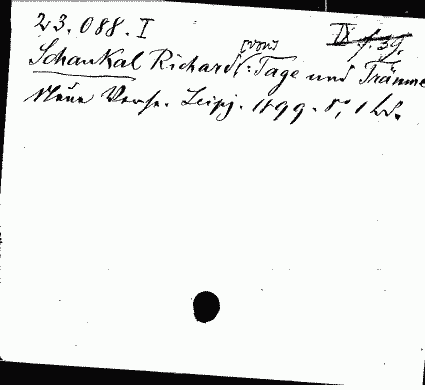 23.088.I
IX f. 39.
[von]
Schaukal Richard: Tage und Träume
Neue Verse. Leipz. 1899. 8°, 1 Bd.